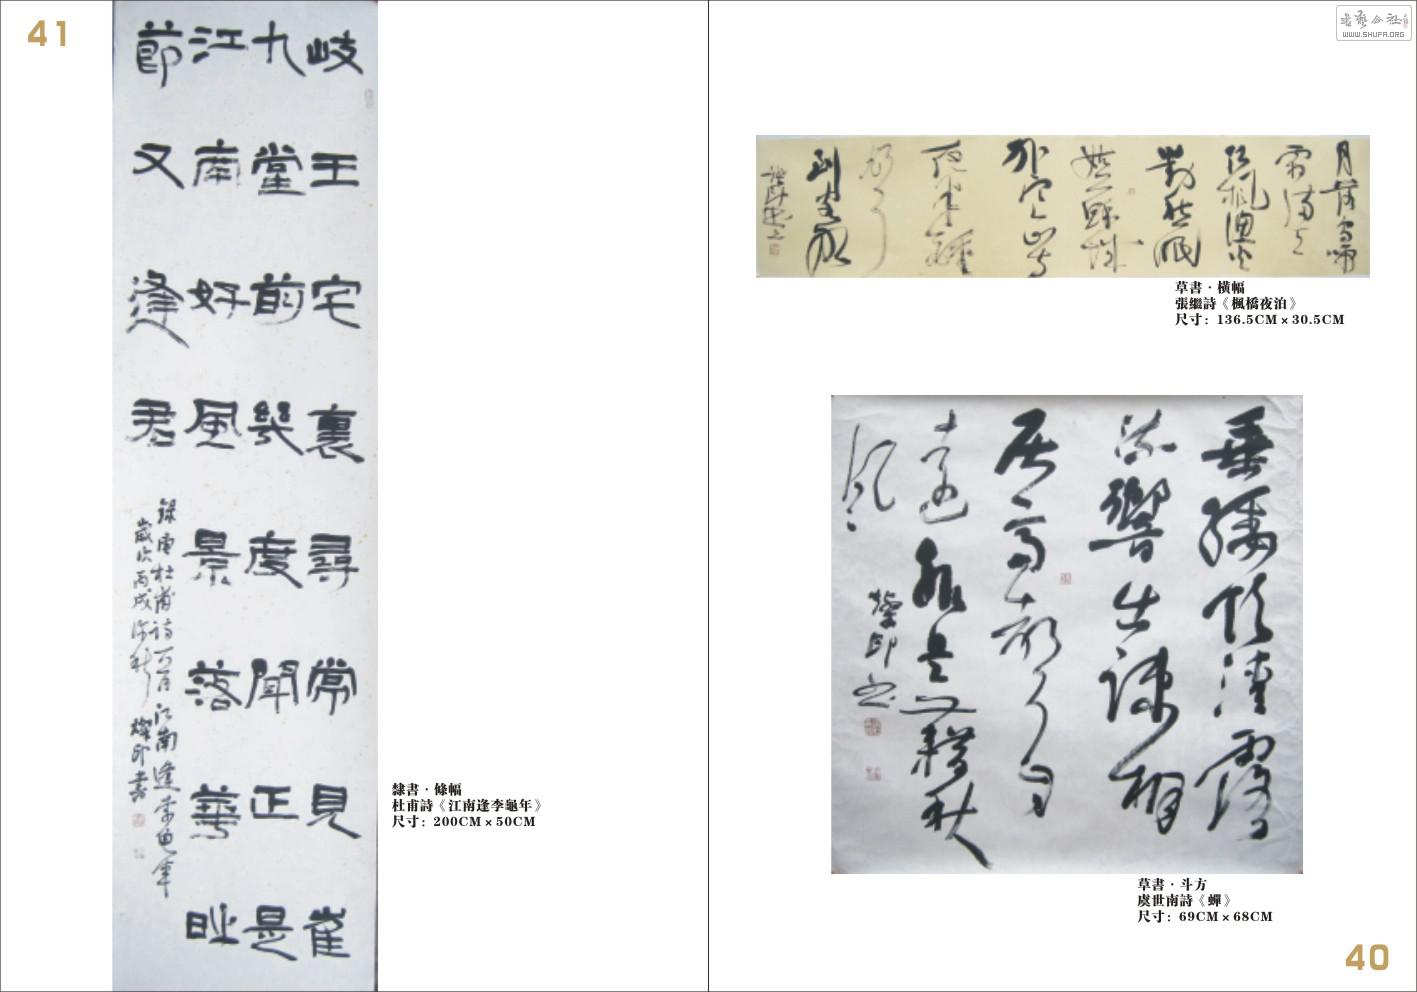 41
岐王宅裏尋常見崔
九堂前幾度聞正是
江南好風景落華時
節又逢君
錄唐杜甫詩一首江南逢李龜年
歲次丙戌 秋 燦印書
隸書·條幅
杜甫詩《江南逢李龜年》
尺寸：200CM×50CM
書藝公社
WWW.SHUFA.ORG
月落烏啼
霜滿天
江楓漁火
對愁眠
姑蘇城
外寒山寺
夜半鐘
聲
到客船
草書·橫幅
張繼詩《楓橋夜泊》
尺寸：136.5CM×30.5CM
垂緌飲清露
流響出疎桐
居高聲自
遠非是藉秋
風
燦印书
草書·斗方
虞世南詩《蟬》
尺寸：69CM×68CM
40